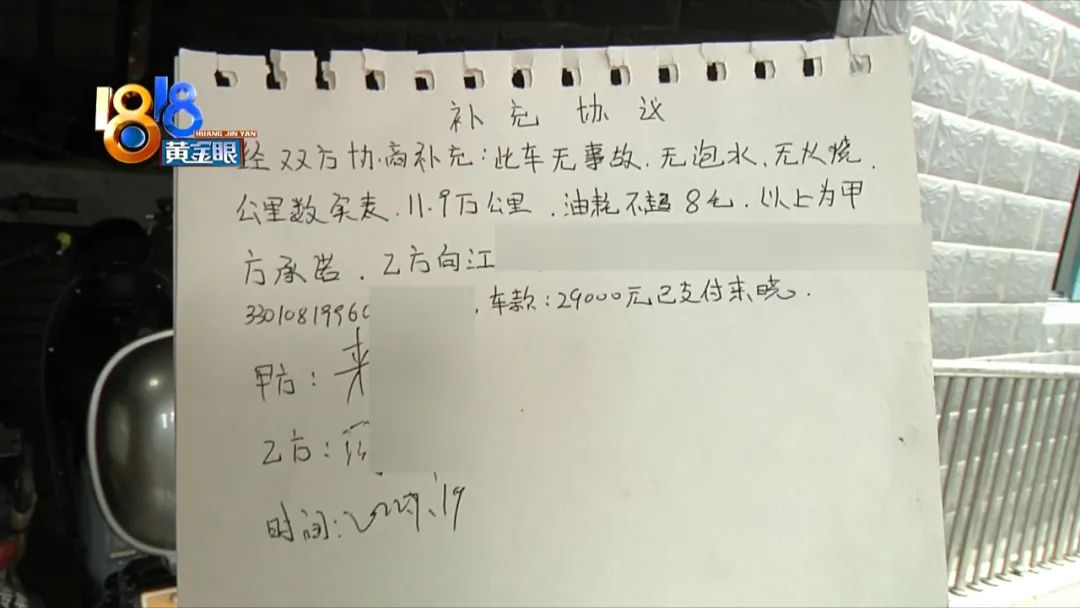 1818
HUANG JIN YAN
黄金眼
补充协议
经双方协商补充：此车无事故、无泡水、无火烧、
公里数实表、11.9万公里、油耗不超8毛、以上为甲
方承诺、乙方向江
33010819960
，车款：29000元已支付来晓。
甲方：来
乙方：
时间：